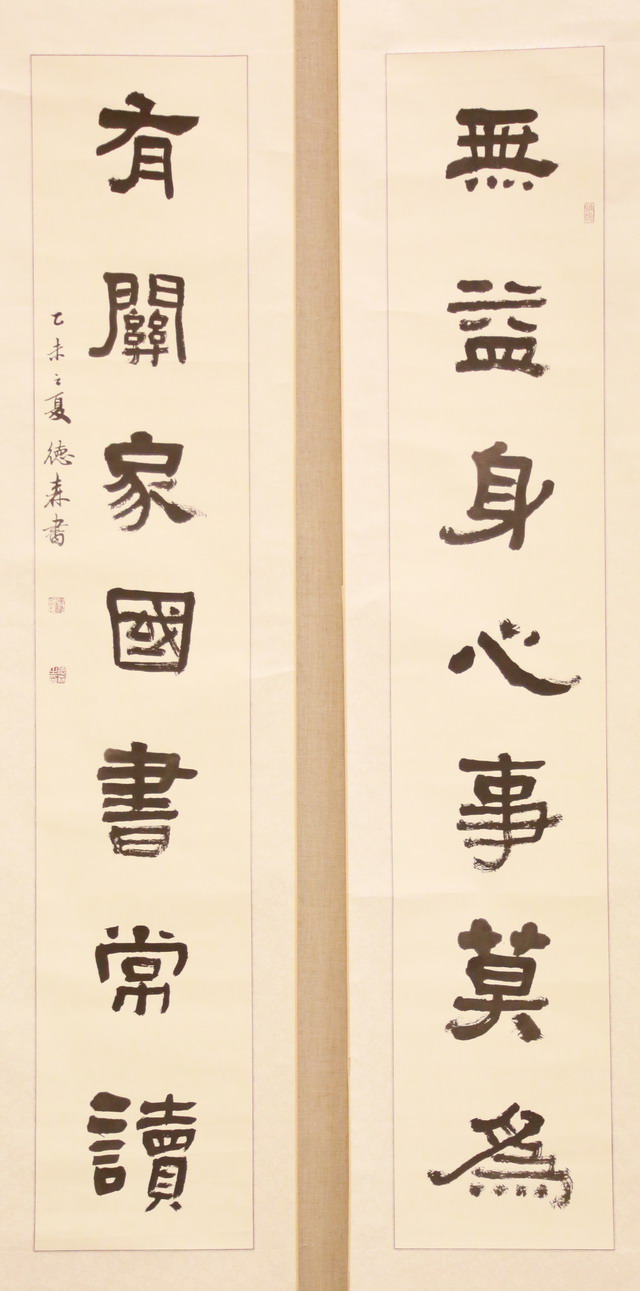 無益身心事莫為
有關家國書常讀
乙未之夏德森書